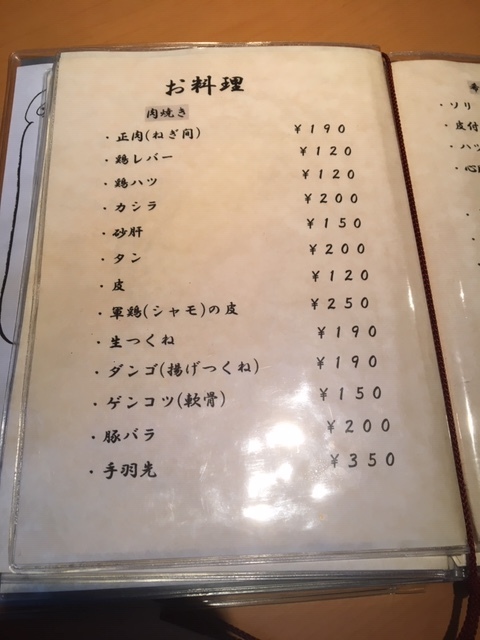 お料理
肉焼き
・正肉(ねぎ間) ¥190
・鶏レバー ¥120
・鶏ハツ ¥120
・カシラ ¥200
・砂肝 ¥150
・タン ¥200
・皮 ¥120
・軍鶏(シャモ)の皮 ¥250
・生つくね ¥190
・ダンゴ(揚げつくね) ¥190
・ゲンコツ(軟骨) ¥150
・豚バラ ¥200
・手羽先 ¥350
・ソリ
・皮付
・ハツ
・心